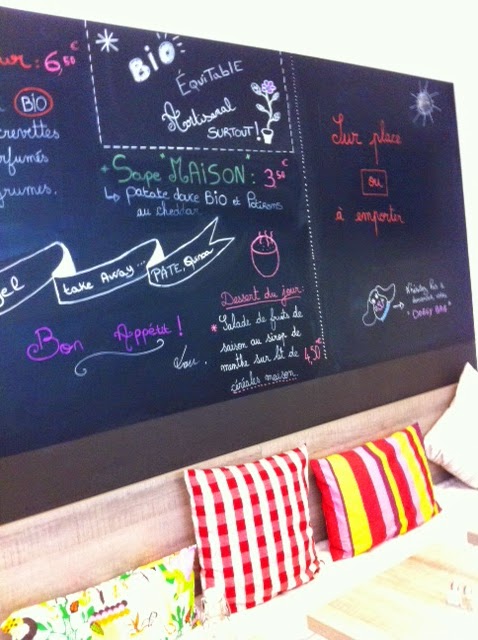 ur : 6,50€
BIO
crevettes
rfumés
grumes.
BiO
ÉQUiTABLE
Artisanal
SURTOUT !
+ Soupe "MAiSON" : 3,50€
↳ patate douce BiO et Potirons
au cheddar.
gel
take Away...
PATE, Quinoa
Bon Appétit !
Dessert du jour :
* Salade de fruits de
saison au sirop de
menthe sur lit de
céréales maison.
4,50€
Sur place
ou
à emporter
" DOGGY BAG "